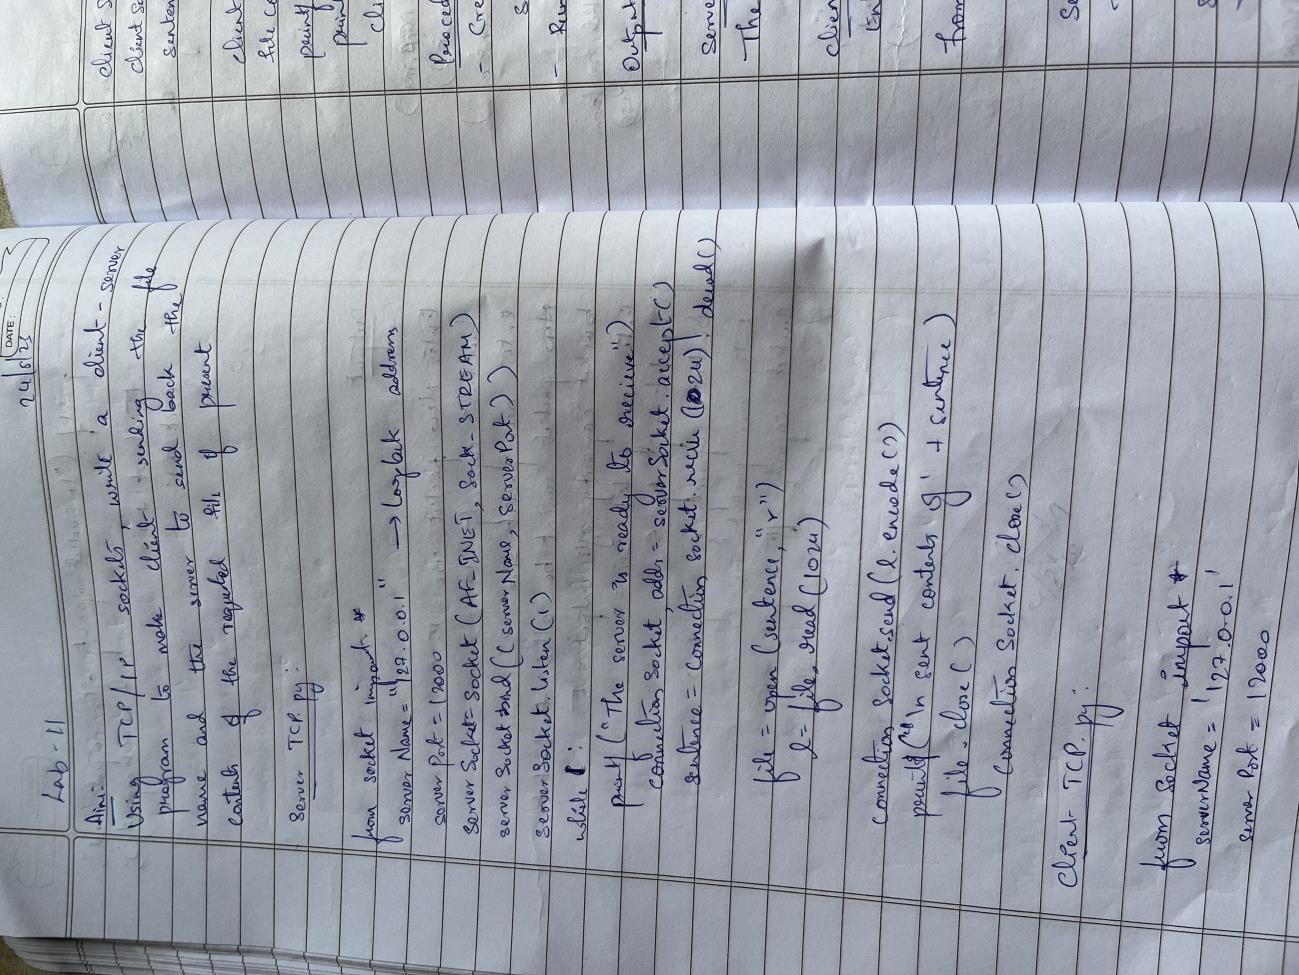 DATE:
24/8/23
Lab - 11
Aim:
Using TCP/IP sockets, write a client - server
program to make client sending the file
name and the server to send back the
contents of the requested file if present
Server TCP.py:
from socket import *
server Name = "127.0.0.1" → Loopback address
server Port = 12000
server Socket = socket (AF_INET, SOCK_STREAM)
server Socket.bind ((serverName, serverPort))
server Socket.listen (1)
while 1:
print ("The server is ready to recieve")
connection Socket, addr = serverSocket.accept()
sentence = connection socket.recv (1024).decod()
file = open (sentence, "r")
l = file.read (1024)
connection Socket.send (l.encode())
print ("\n sent contents of" + sentence)
file.close()
connection Socket.close()
Client TCP.py:
from socket import *
serverName = '127.0.0.1'
server Port = 12000
client S
client So
senten
client
file Co
print
print
cli
Proced
- Cre
S
- Run
Output
Serve
The
Clien
Ent
from
Se